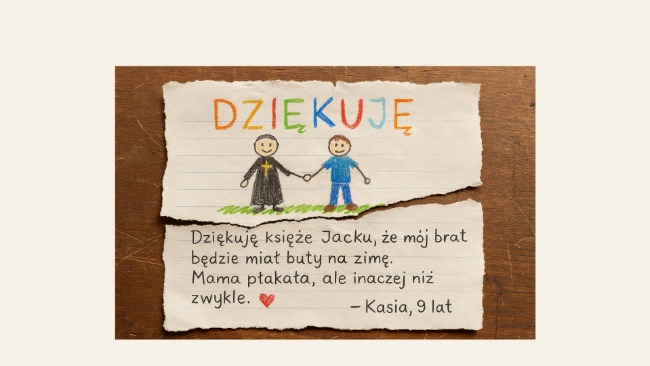 DZIĘKUJĘ
Dziękuję księże Jacku, że mój brat
będzie miał buty na zimę.
Mama płakała, ale inaczej niż
zwykle.
– Kasia, 9 lat